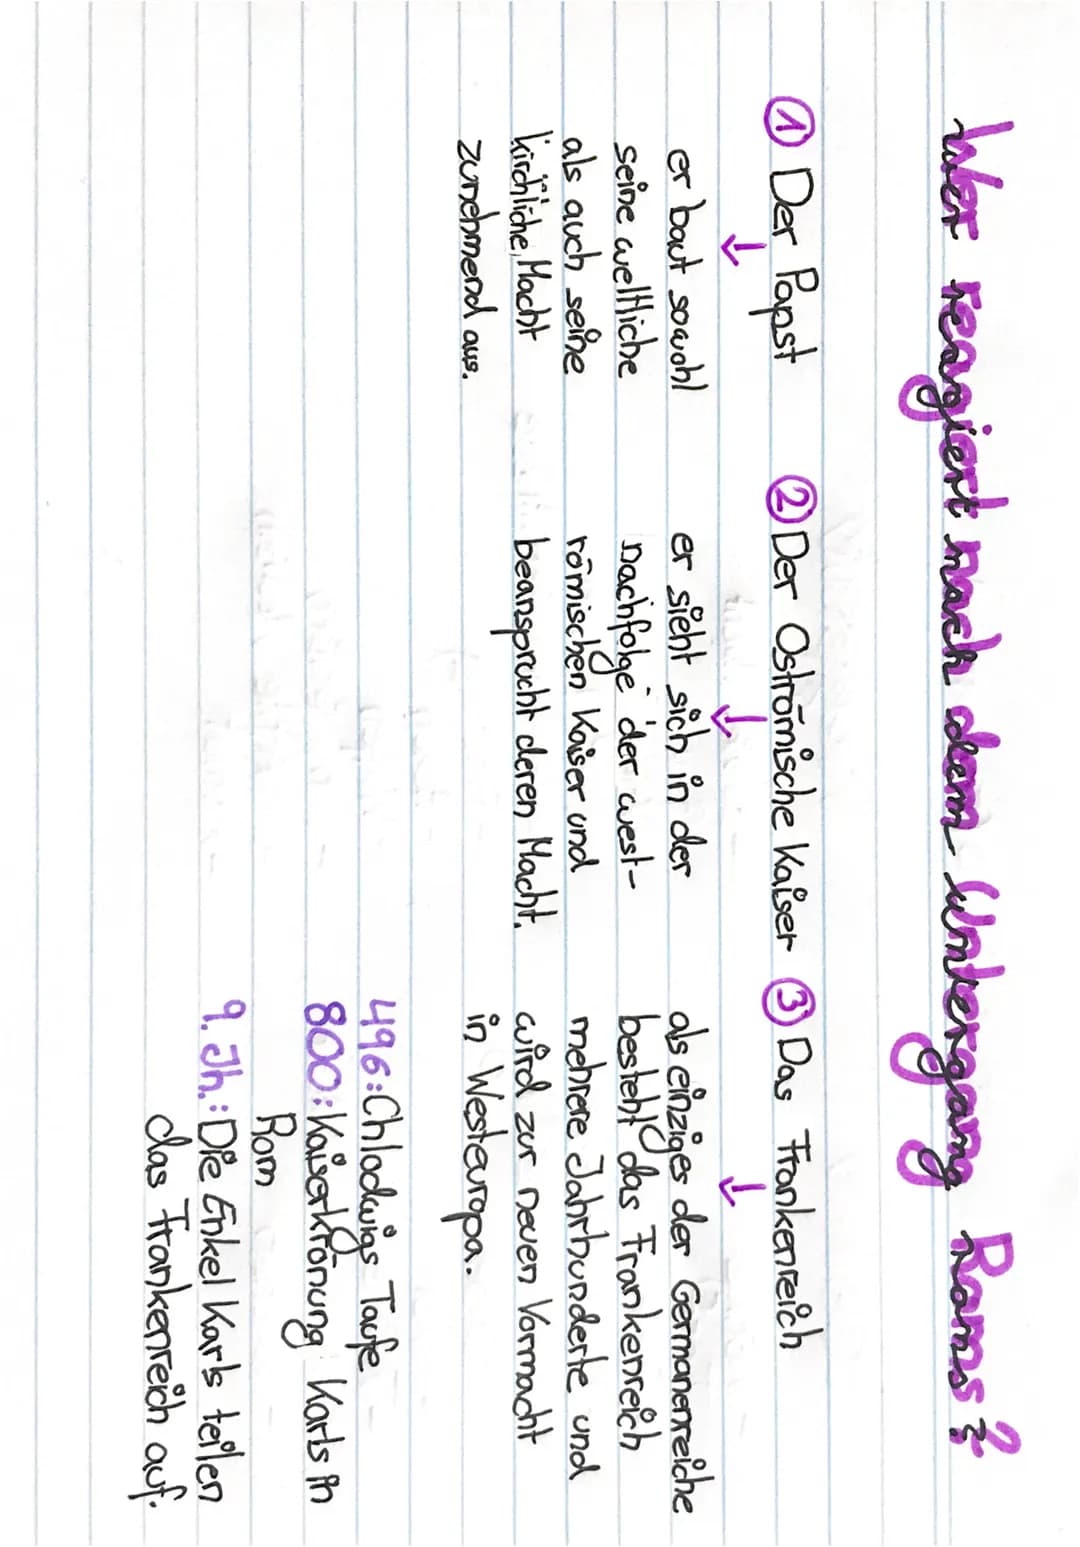 Wer reagiert nach dem Untergang Roms?
① Der Papst
↓
er baut sowohl
seine weltliche
als auch seine
kirchliche Macht
zunehmend aus.
② Der Oströmische Kaiser
↓
er sieht sich in der
Nachfolge der west-
römischen Kaiser und
beansprucht deren Macht.
③ Das Frankenreich
↓
als einziges der Germanenreiche
besteht das Frankenreich
mehrere Jahrhunderte und
wird zur neuen Vormacht
in Westeuropa.
496: Chlodwigs Taufe
800: Kaiserkrönung Karls in
Rom
9. Jh.: Die Enkel Karls teilen
das Frankenreich auf.